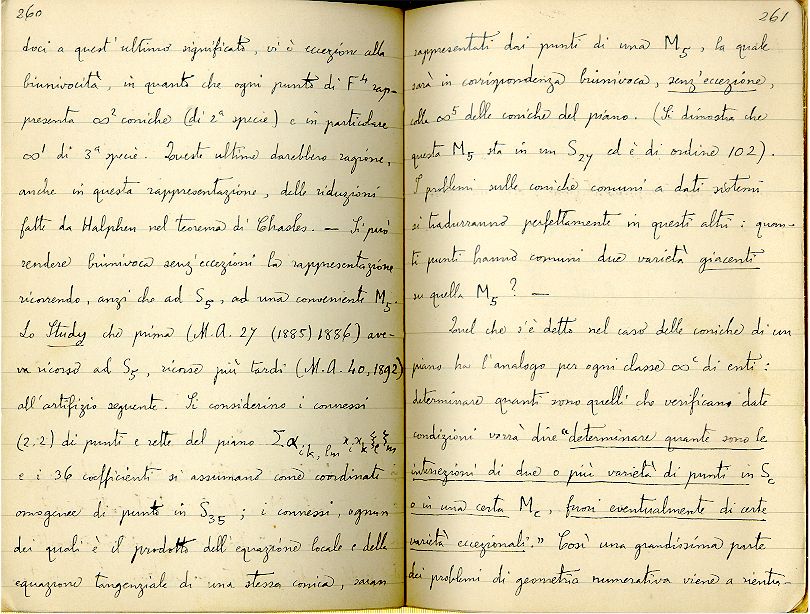 260
doci a quest'ultimo significato, vi è eccezione alla
biunivocità, in quanto che ogni punto di F⁴ rap-
presenta ∞² coniche (di 2ª specie) e in particolare
∞¹ di 3ª specie. Queste ultime darebbero ragione,
anche in questa rappresentazione, delle riduzioni
fatte da Halphen nel teorema di Chasles. — Si può
rendere biunivoca senz'eccezioni la rappresentazione
ricorrendo, anzi che ad S₅, ad una conveniente M₅.
Lo Study che prima (M.A. 27 (1885) 1886) ave-
va ricorso ad S₅, ricorse più tardi (M.A. 40, 1892)
all'artifizio seguente. Si considerino i connessi
(2,2) di punti e rette del piano Σα_{ik,lm} x_i x_k ξ_l ξ_m
e i 36 coefficienti si assumano come coordinate
omogenee di punto in S₃₅; i connessi, ognun
dei quali è il prodotto dell'equazione locale e della
equazione tangenziale di una stessa conica, saran
261
rappresentati dai punti di una M₅, la quale
sarà in corrispondenza biunivoca, senz'eccezione,
colle ∞⁵ delle coniche del piano. (Si dimostra che
questa M₅ sta in un S₂₇ ed è di ordine 102).
I problemi sulle coniche comuni a dati sistemi
si tradurranno perfettamente in questi altri: quan-
ti punti hanno comuni due varietà giacenti
su quella M₅? —
Quel che s'è detto nel caso delle coniche di un
piano ha l'analogo per ogni classe ∞ᶜ di enti:
determinare quanti sono quelli che verificano date
condizioni vorrà dire "determinare quante sono le
intersezioni di due o più varietà di punti in S_c
o in una certa M_c, fuori eventualmente di certe
varietà eccezionali." Così una grandissima parte
dei problemi di geometria numerativa viene a rientra-